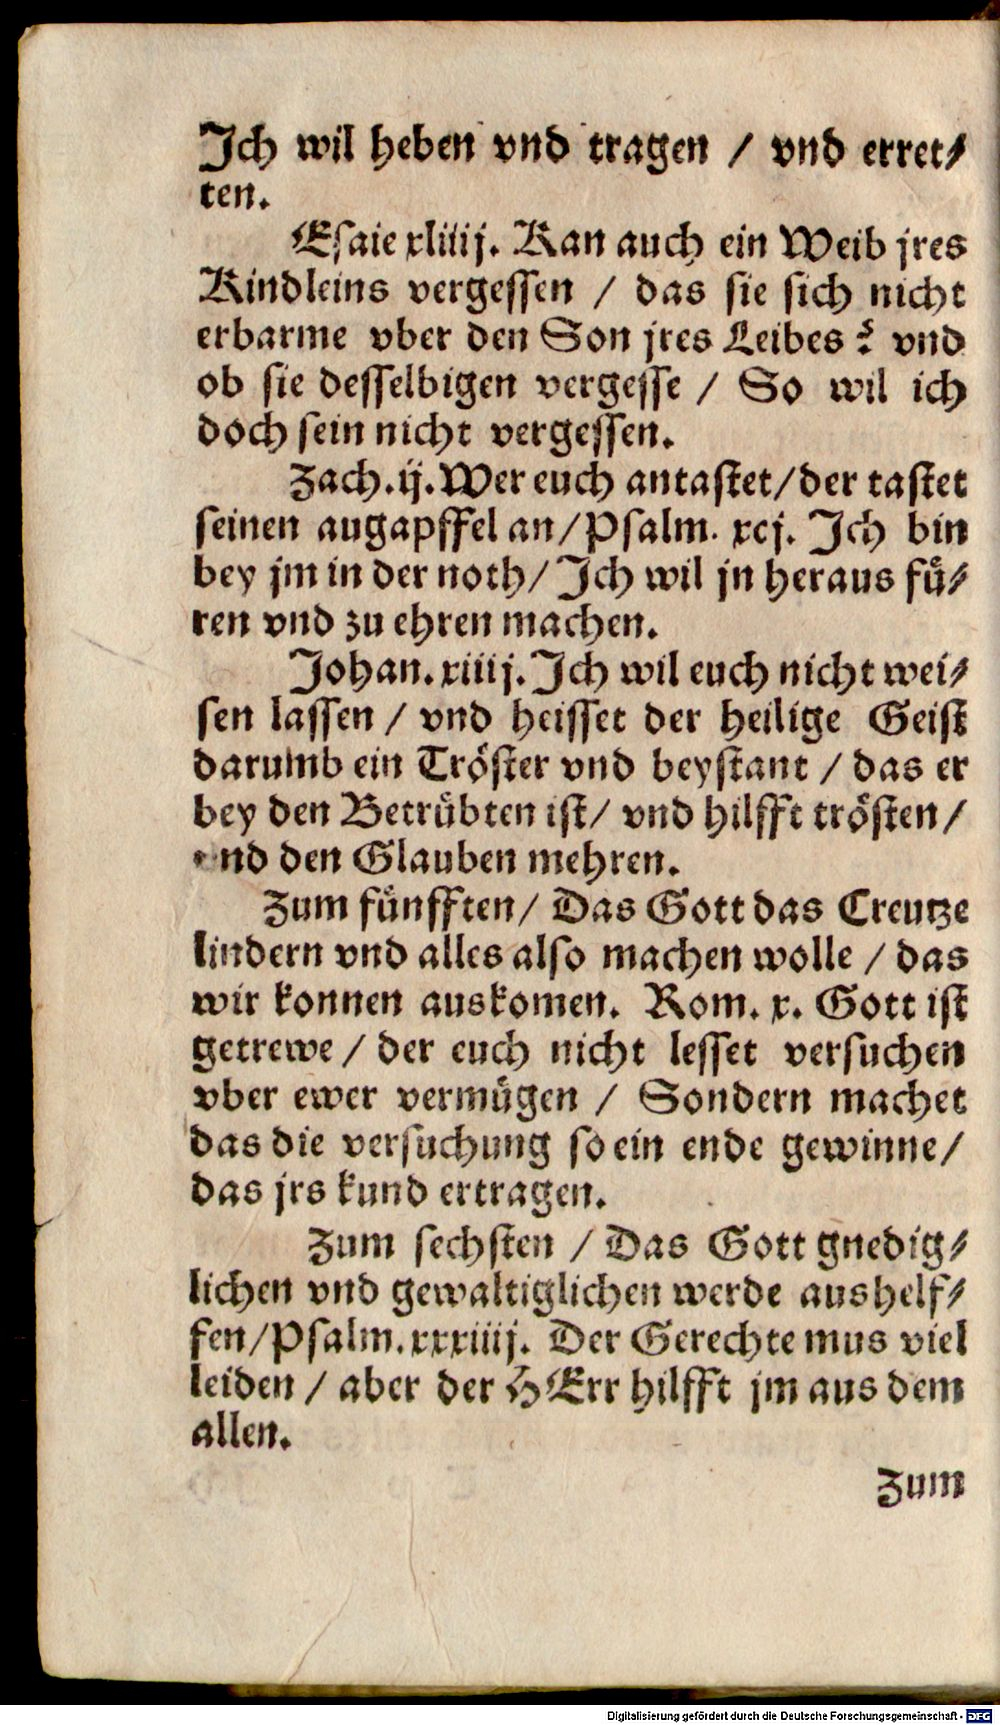 Ich wil heben vnd tragen / vnd erret⸗
ten.
Esaie xliiij. Kan auch ein Weib jres
Kindleins vergessen / das sie sich nicht
erbarme vber den Son jres Leibes? vnd
ob sie desselbigen vergesse / So wil ich
doch sein nicht vergessen.
Zach. ij. Wer euch antastet / der tastet
seinen augapffel an / Psalm. xcj. Ich bin
bey jm in der noth / Ich wil jn heraus fuͤ⸗
ren vnd zu ehren machen.
Johan. xiiij. Ich wil euch nicht wei⸗
sen lassen / vnd heisset der heilige Geist
darumb ein Troͤster vnd beystant / das er
bey den Betruͤbten ist / vnd hilfft troͤsten /
vnd den Glauben mehren.
Zum fuͤnfften / Das Gott das Creutze
lindern vnd alles also machen wolle / das
wir konnen auskomen. Rom. x. Gott ist
getrewe / der euch nicht lesset versuchen
vber ewer vermuͤgen / Sondern machet
das die versuchung so ein ende gewinne /
das jrs kund ertragen.
Zum sechsten / Das Gott gnedig⸗
lichen vnd gewaltiglichen werde aushelf⸗
fen / Psalm. xxxiiij. Der Gerechte mus viel
leiden / aber der HErr hilfft jm aus dem
allen.
Zum
Digitalisierung gefördert durch die Deutsche Forschungsgemeinschaft - DFG